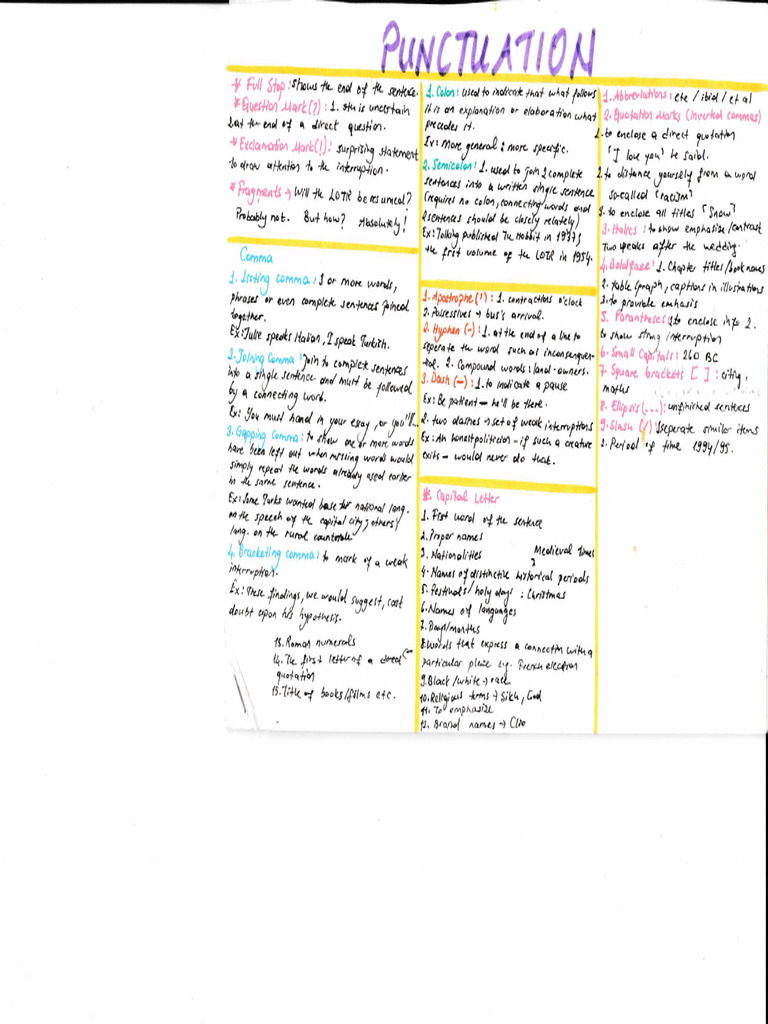 PUNCTUATION
* Full Stop: shows the end of the sentence.
* Question Mark(?): 1. sth is uncertain
2. at the end of a direct question.
* Exclamation Mark(!): surprising statement
to draw attention to the interruption.
* Fragments → Will the LOTR be resumed?
Probably not. But how? Absolutely!
Comma
1. Listing comma: 3 or more words,
phrases or even complete sentences joined
together.
Ex: Julie speaks Italian, I speak Turkish.
2. Joining Comma: join to complete sentences
into a single sentence and must be followed
by a connecting word.
Ex: You must hand in your essay, or you'll...
3. Gapping comma: to show one or more words
have been left out when missing words would
simply repeat the words already used earlier
in the same sentence.
Ex: Some Turks wanted base for national lang.
on the speech of the capital city; others,
lang. on the rural
4. Bracketing comma: to mark of a weak
interruption.
Ex: These findings, we would suggest, cast
doubt upon his hypothesis.
13. Roman numerals
14. The first letter of a direct
quotation
15. Title of books/films etc.
1. Colon: used to indicate that what follows
it is an explanation or elaboration what
precedes it.
Ex: More general : more specific.
2. Semicolon: 1. used to join 2 complete
sentences into a written single sentence
(requires no colon, connecting words and
2 sentences should be closely relately)
Ex: Tolking published The Hobbit in 1937;
the first volume of the LOTR in 1954.
1. Apostrophe('): 1. contractions o'clock
2. Possessives → bus's arrival.
2. Hyphen (-): 1. at the end of a line to
seperate the word such as inconsequen-
tial. 2. Compound words: land-owners.
3. Dash (—): 1. to indicate a pause
Ex: Be patient — he'll be there.
2. two dashes → set of weak interruptions
Ex: An honest politician – if such a creature
exits – would never do that.
* Capital Letter
1. First word of the sentence
2. Proper names
3. Nationalities
Medieval times
4. Names of distinctive historical periods
5. Festivals/holy days : Christmas
6. Names of languages
7. Days/months
8. Words that express a connection with a
particular place e.g. French election
9. Black/white → race
10. Religious terms → Sikh, God
11. To emphasize
12. Brand names → Clio
1. Abbreviations: etc / ibid / et al
2. Quotation Marks (inverted commas)
1. to enclose a direct quotation
"I love you" he said.
2. to distance yourself from a word
so-called "racism"
3. to enclose all titles "Snow"
3. Italics: to show emphasize/contrast
Two weeks after the wedding.
4. Boldface: 1. Chapter titles/book names
2. table graph, captions in illustrations
3. to provide emhasis
5. Parantheses: 1. to enclose info 2.
to show string interruption
6. Small Capitals: 260 BC
7. Square brackets [ ]: citing,
maths
8. Ellipsis (...): unfinished sentences
9. Slash (/): 1. seperate similar items
2. Period of time 1994/95.